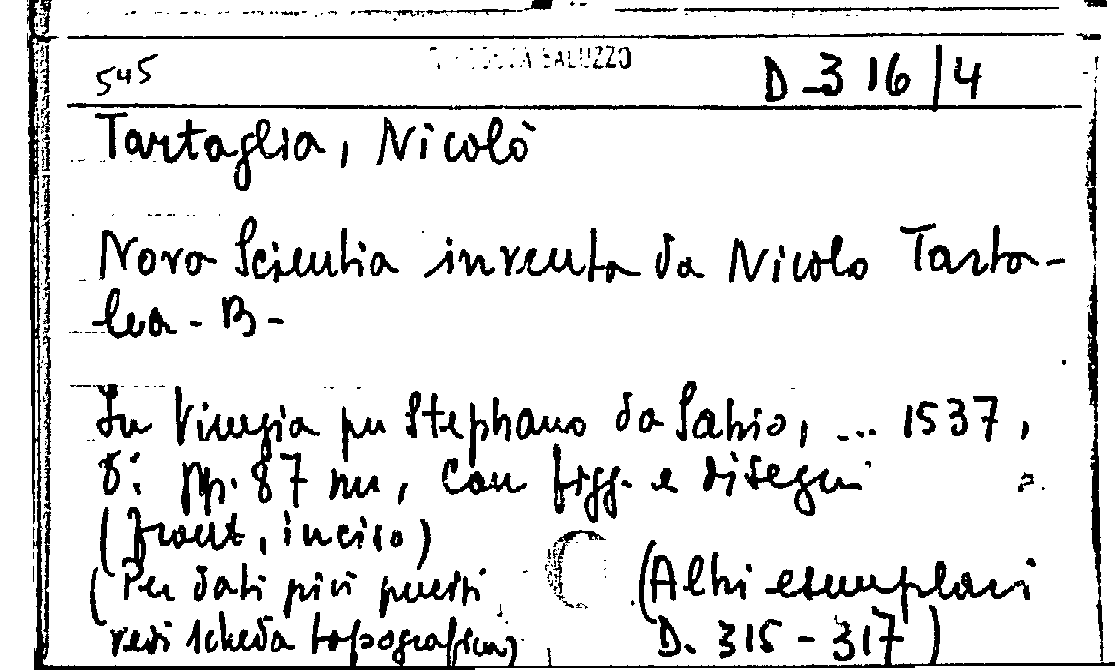 545 SALUZZO D_316/4
Tartaglia, Nicolò
Nova Scientia inventa da Nicolo Tarta-
lea - B -
In Vinegia per Stephano da Sabio, ... 1537,
8: pp. 87 nn, con figg. e disegni
(front, inciso)
(Per dati più precisi (Altri esemplari
vedi scheda topografica) D. 315 - 317)